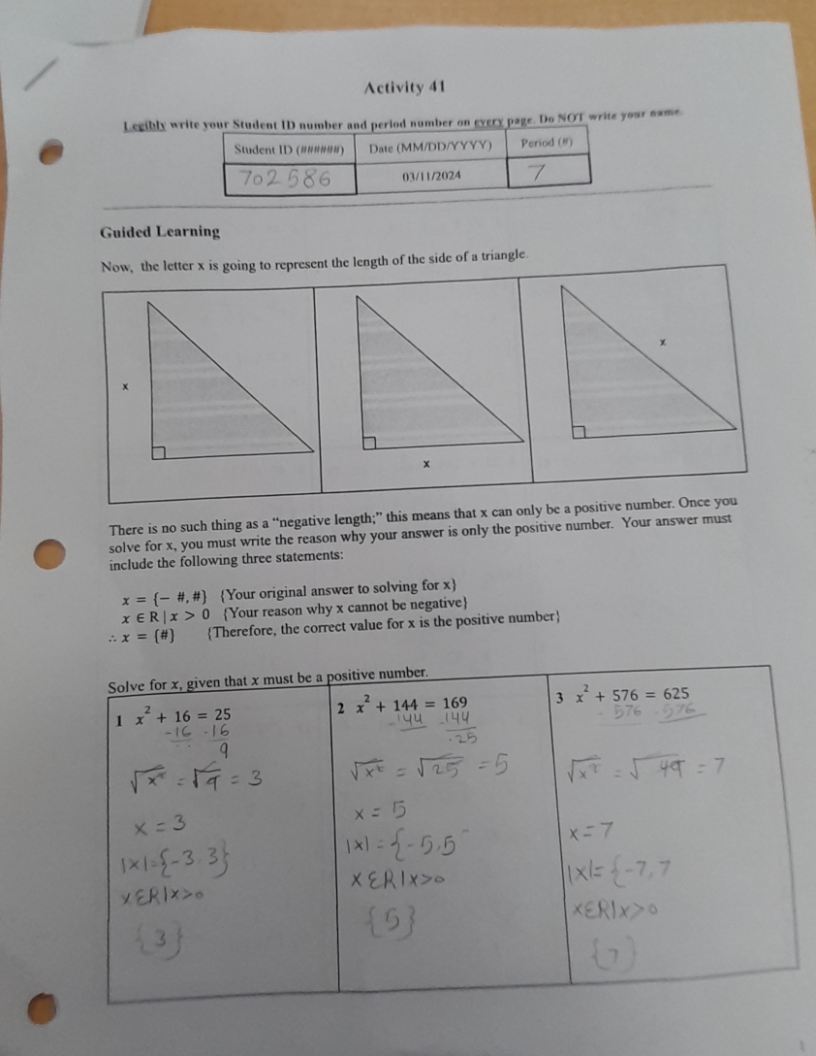 Activity 41
Legibly write your Student ID number and period number on every page. Do NOT write your name.
Student ID (######) Date (MM/DD/YYYY) Period (#)
702586 03/11/2024 7
Guided Learning
Now, the letter x is going to represent the length of the side of a triangle.
x
x
x
There is no such thing as a “negative length;” this means that x can only be a positive number. Once you
solve for x, you must write the reason why your answer is only the positive number. Your answer must
include the following three statements:
x = {− #, #} {Your original answer to solving for x}
x ∈ R | x > 0 {Your reason why x cannot be negative}
∴ x = {#} {Therefore, the correct value for x is the positive number}
Solve for x, given that x must be a positive number.
1 x² + 16 = 25
-16 -16
9
√x² = √9 = 3
x = 3
|x|={-3.3}
xƐR|x>0
{3}
2 x² + 144 = 169
-144 -144
25
√x² = √25 = 5
x = 5
|x|={-5,5
xƐR|x>0
{5}
3 x² + 576 = 625
- 576 -576
√x² = √49 = 7
x=7
|x|={-7,7
xƐR|x>0
{7}